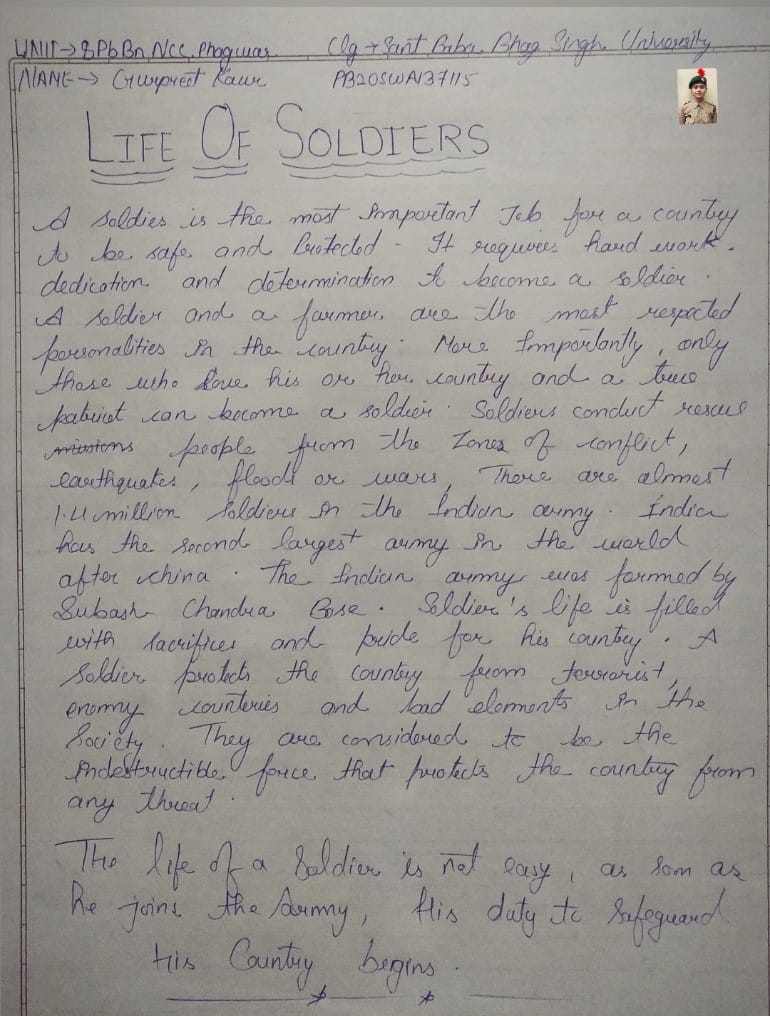 UNIT → 8 Pb Bn NCC Phagwar Clg → Sant Baba Bhag Singh University
NAME → Gurpreet Kaur PB20SWA137115
LIFE OF SOLDIERS
A soldies is the most Important Job for a country
to be safe and Protected. It requires hard work.
dedication and determination to become a soldier.
A soldier and a farmer are the most respected
personalities in the country. More Importantly, only
those who love his or her country and a true
patriot can become a soldier. Soldiers conduct rescue
missions people from the Zones of conflict,
earthquakes, floods or wars, There are almost
1.4 million soldiers in the Indian army. India
has the second largest army in the world
after china. The Indian army was formed by
Subash Chandra Bose. Soldier's life is filled
with sacrifices and pride for his country. A
soldier protects the country from terrorist,
enemy countries and bad elements in the
Society. They are considered to be the
Indestructible force that protects the country from
any threat.
The life of a Soldier is not easy, as soon as
he joins the Army, His duty to Safeguard
His Country begins.